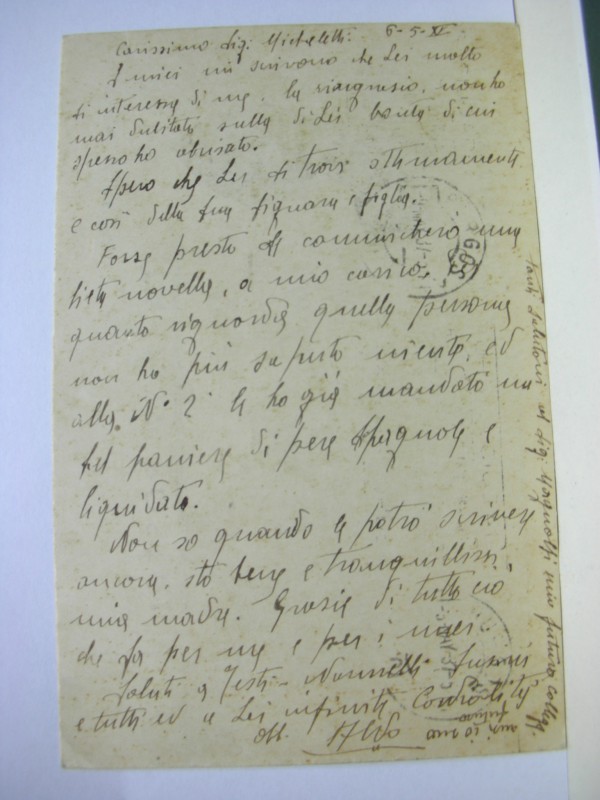 Carissimo Sig. Micheletti. 6-5-XV
I miei mi scrivono che Lei molto
si interessa di me. La ringrazio. non ho
mai dubitato sulla di Lei bontà di cui
spesso ho abusato.
Spero che Lei si trovi ottimamente
e così della sua signora e figlia.
Forse presto Le comunicherò una
lieta novella, a mio carico.
quanto riguarda quella persona
non ho più saputo niente, ed
alla N° 2 le ho già mandato un
bel paniere di pere spagnole e
liquidato.
Non so quando le potrò scrivere
ancora. sto bene e tranquillissi
mia madre. Grazie di tutto ciò
che fa per me e per i miei.
Saluti a Testi - Nannetti
e tutti ed a Lei infiniti
Aff. Aldo
tanti saluti al Sig. mio futuro colleg.